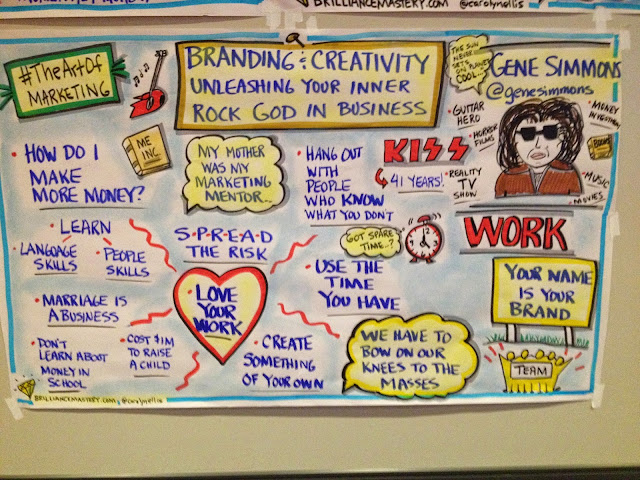 BRILLIANCEMASTERY.COM @carolynellis
#TheArtOf
MARKETING
BRANDING & CREATIVITY
UNLEASHING YOUR INNER
ROCK GOD IN BUSINESS
THE SUN
NEVER
SETS
ON PLANET
COOL...
GENE SIMMONS
@genesimmons
• GUITAR
HERO
• HORROR
FILMS
• REALITY
TV
SHOW
• MONEY
INVESTMENT
BOOKS
• MUSIC
• MOVIES
• HOW DO I
MAKE
MORE MONEY?
ME
INC.
MY MOTHER
WAS MY
MARKETING
MENTOR...
• HANG OUT
WITH
PEOPLE
WHO KNOW
WHAT YOU DON'T
KISS
41 YEARS!
WORK
LEARN
LANGUAGE
SKILLS
PEOPLE
SKILLS
S•P•R•E•A•D
THE RISK
GOT SPARE
TIME..?
• USE THE
TIME
YOU HAVE
• MARRIAGE IS
A BUSINESS
• LOVE
YOUR
WORK
YOUR NAME
IS YOUR
BRAND
• DON'T
LEARN ABOUT
MONEY IN
SCHOOL
• COST $1M
TO RAISE
A CHILD
• CREATE
SOMETHING
OF YOUR OWN
WE HAVE TO
BOW ON OUR
KNEES TO THE
MASSES
TEAM
BRILLIANCEMASTERY.COM, @carolynellis